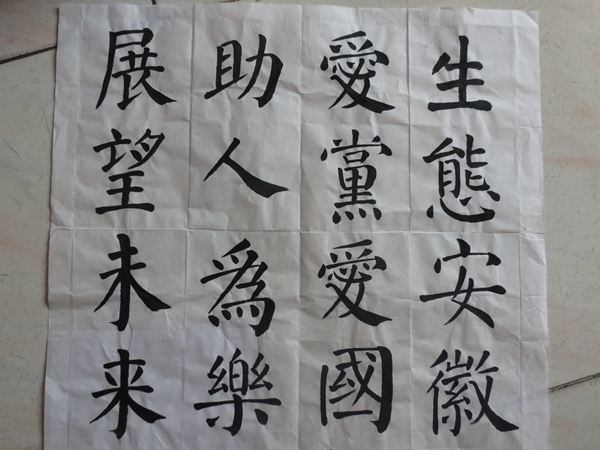 生態安徽
愛黨愛國
助人為樂
展望未来